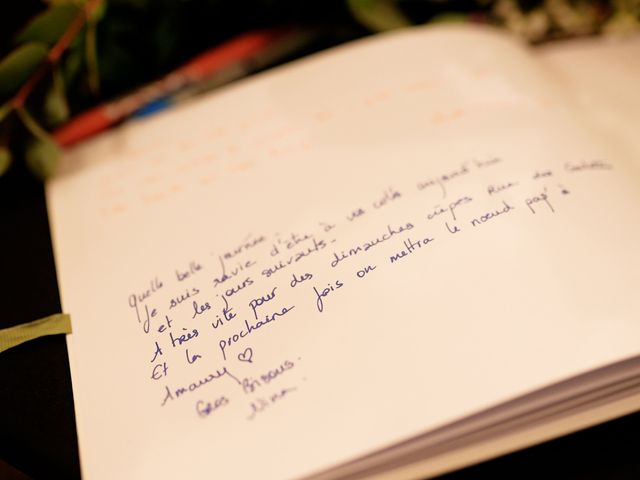 Quelle belle journée.
Je suis ravie d'être à vos côtés aujourd'hui
et les jours suivants.
A très vite pour des dimanches crêpes Rue des
Et la prochaine fois on mettra le noeud pap' à
Amaury ♡
Gros Bisous.
Nina.